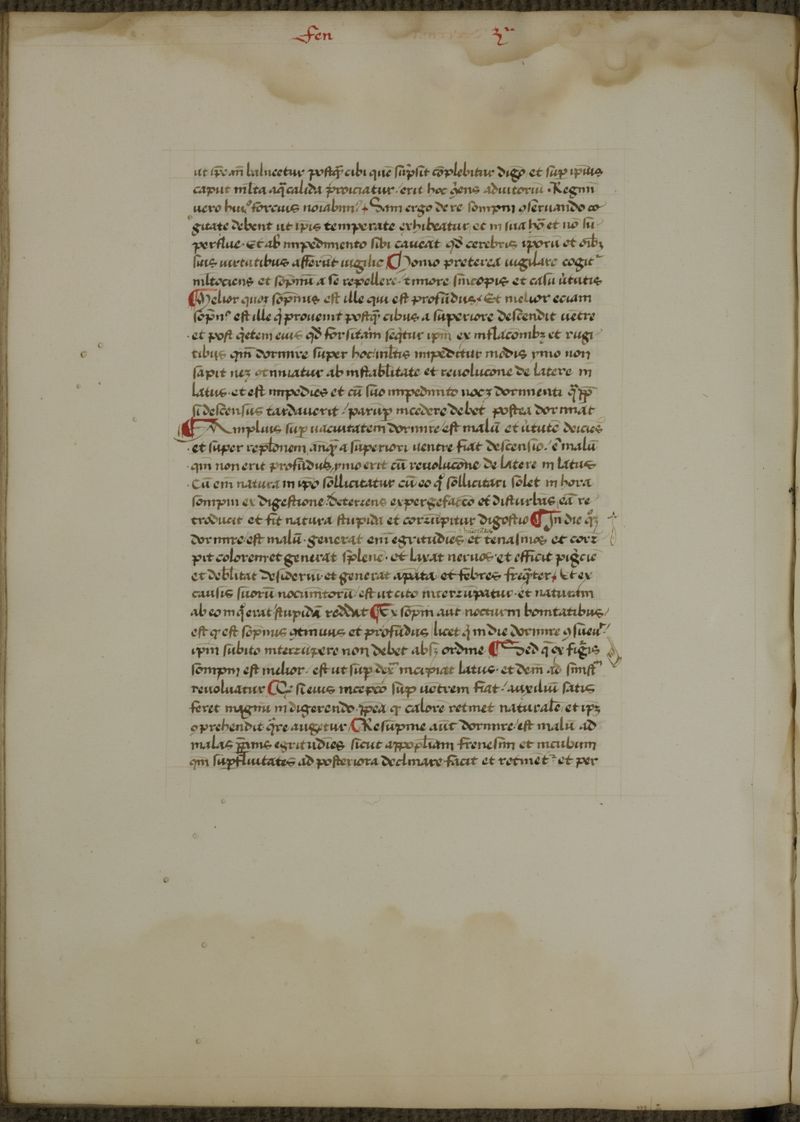 Fen 3ᵃ
ut ip̄e añ balneetur postq̄ cibi quē sūpsit cōplebitur digo et sup ipīus
caput mlta aq̄ calida proiciatur · erit hoc gēns adiutoriū · Regnū
uero huiꝰ forcius noiabim⁹ · Sani ergo de re sompni oseruando co
gitate debent ut ip̄is temperate exhibeatur et in sua hō et nō sū
perflue · Et ab impedimento sibi caueat qd̄ cerebris iporū et oībꝫ
suis uirtutibus afferūt uigilie ¶ Homo preterea uigilare cogit᷑
mltociens et sōpnū a se repellere · timore sincopis et casu ùtutis
¶ Melior quoꝫ sōpnus est ille qui est profūdus · Et melior eciam
sōpn⁹ est ille q̄ prouenit postq̄ cibus a superiore descendit uētre
· et post q̄etem eius qd̄ forsitam seq̄tur ipm̄ ex inflacōmbꝫ et rugi
tibus qm̄ dormire super hoc mltis impeditur modis ymo non
sapit neꝫ otinuatur ab instablitate et reuolucone de latere in
latus · et est impedies et cū suo impedimto nocꝫ dormienti q̄ꝓp̄
si descensus tardauerit / parūp incedere debet postea dormiat
¶ Amplius sup uacuitatem dormire est malū et ùtute deicies
· et super repl̄onem añq̄ a superiori uentre fiat descensio / ē malū
· qm̄ non erit profūdus / ymo erit cū reuolucōne de latere in latus
· Cū em natura in ip̄o sollicitatur cū eo q̄ sollicitari solet in hora
sompni ex digestione / deteriens expergefacco et disturbās eā re
troducit et fit natura stupida et corrūpitur digestio ¶ In die qꝫ
dormire est malū · generat enī egritudies et tenasmos et corrū
pit colorem et generat splene · et laxat neruos et efficit pigcie
et deblitat desideriū et generat apata et febres freq̄ter · Et ex
causis suorū nocumtorū est ut cito interrūpatur · et naturam
ab eo in q̄ erat stupidā reddat ¶ Ex sōpni aut nocturni bonitatibus /
est qꝛ est sōpnus ɔtinuus et profūdus licet q̄ in die dormire ɔsueu᷑ /
ipm̄ subito interrūpere non debet absꝫ ordine ¶ Sed q̄ ex figiis
sompni est melior · est ut sup dex᷑ incipiat latus · et dem̄ ad sinist᷑
reuoluatur ¶ Et si eius incepco sup uetrem fiat / auxiliū satis
feret magnū in digerendo · ꝓpea qꝛ calorē retinet naturalē et ipꝫ
ɔprehendit q̄re augetur / ¶ Resupine aūt dormire / est malū ad
malas p̄pans egritudies sicut apoplxiam frenesim et incubum
qm̄ supfluitates ad posteriora declinare facit et retinet᷑ et per